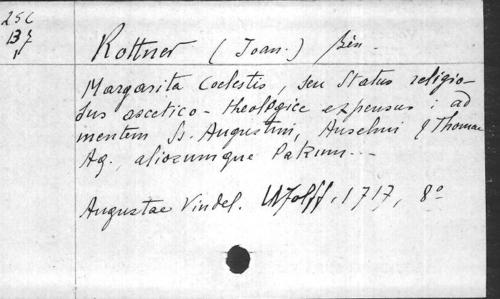 25C
137
1
Rottner (Joan.) Bén.
Margarita Coelestis, seu Status religio-
sus ascetico-theologice expensus: ad
mentem Ss. Augustini, Anselmi & Thomae
Aq., aliorumque Patrum...
Augustae Vindel. Wolff, 1717, 8º